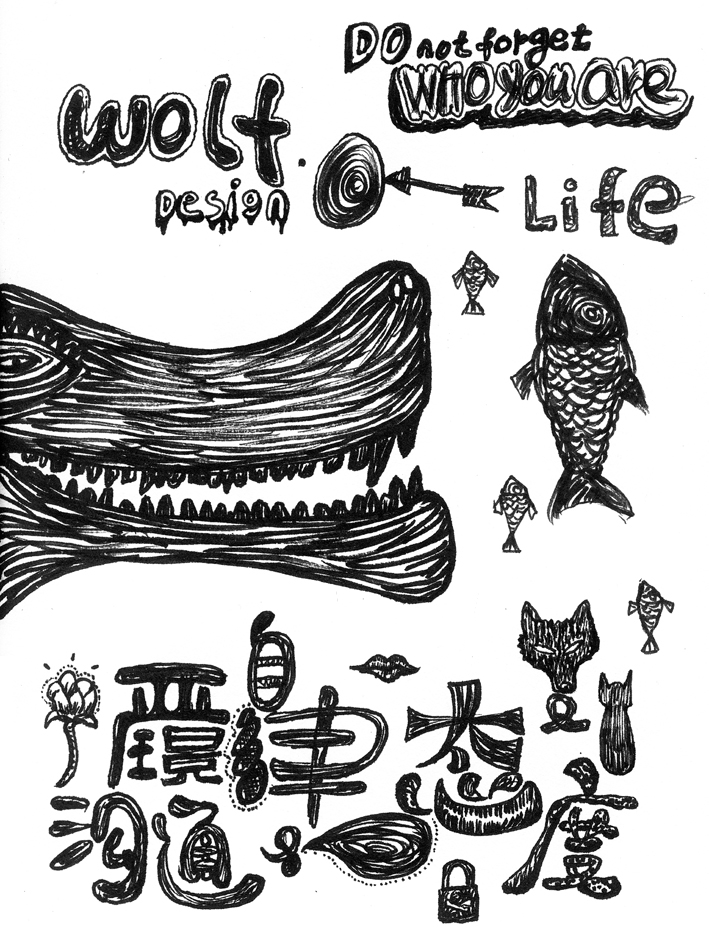 Do not forget
WHO you are
wolf.
Design
Life
自律 态度
沟通